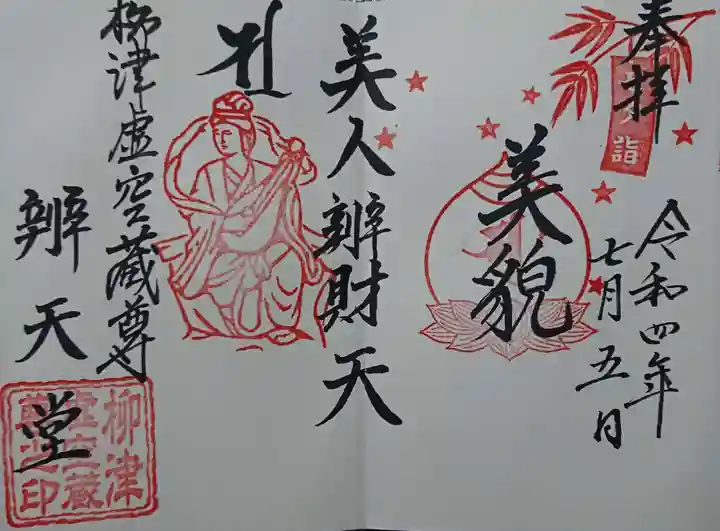 奉拝
詣
令和四年
七月五日
美貌
美人辨財天
柳津虚空蔵尊
辨天堂
柳津
虚空蔵
尊之印